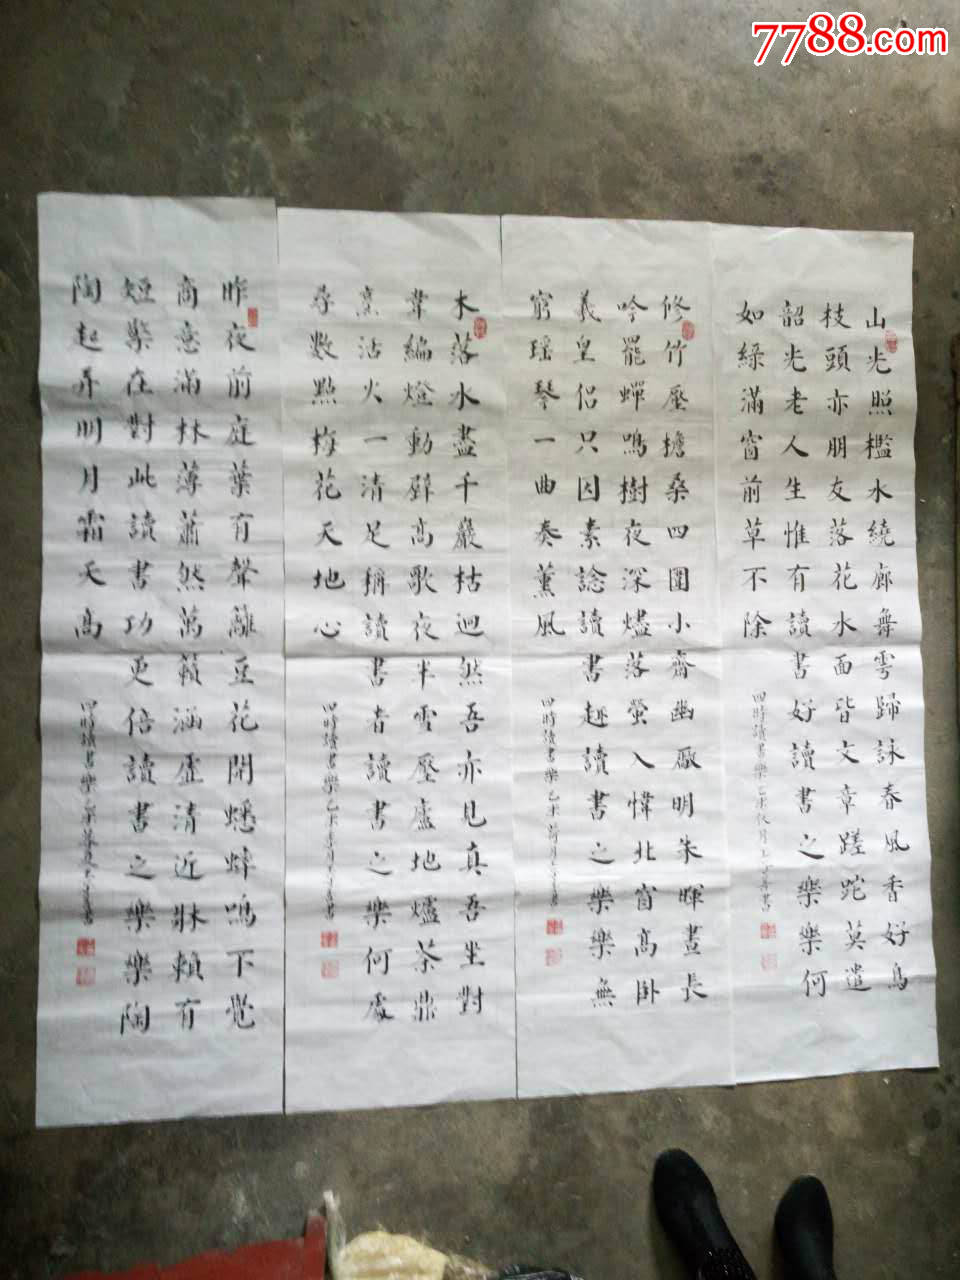 7788.com
山光照檻水繞廊舞雩歸詠春風香好鳥
枝頭亦朋友落花水面皆文章蹉跎莫遣
韶光老人生惟有讀書好讀書之樂樂何
如綠滿窗前草不除
四時讀書樂乙未秋月
修竹壓擔桑四圍小齋幽敞明朱暉晝長
吟罷蟬鳴樹夜深燼落螢入幃北窗高卧
羲皇侶只因素諗讀書趣讀書之樂樂無
窮瑤琴一曲奏薰風
四時讀書樂乙未
木落水盡千巖枯迥然吾亦見真吾坐對
韋編燈動壁高歌夜半雪壓廬地爐茶鼎
烹活火一清足稱讀書者讀書之樂何處
尋數點梅花天地心
四時讀書樂乙未
昨夜前庭葉有聲籬豆花開蟋蟀鳴不覺
商意滿林薄蕭然萬籟涵虛清近牀賴有
短檠在對此讀書功更倍讀書之樂樂陶
陶起弄明月霜天高
四時讀書樂